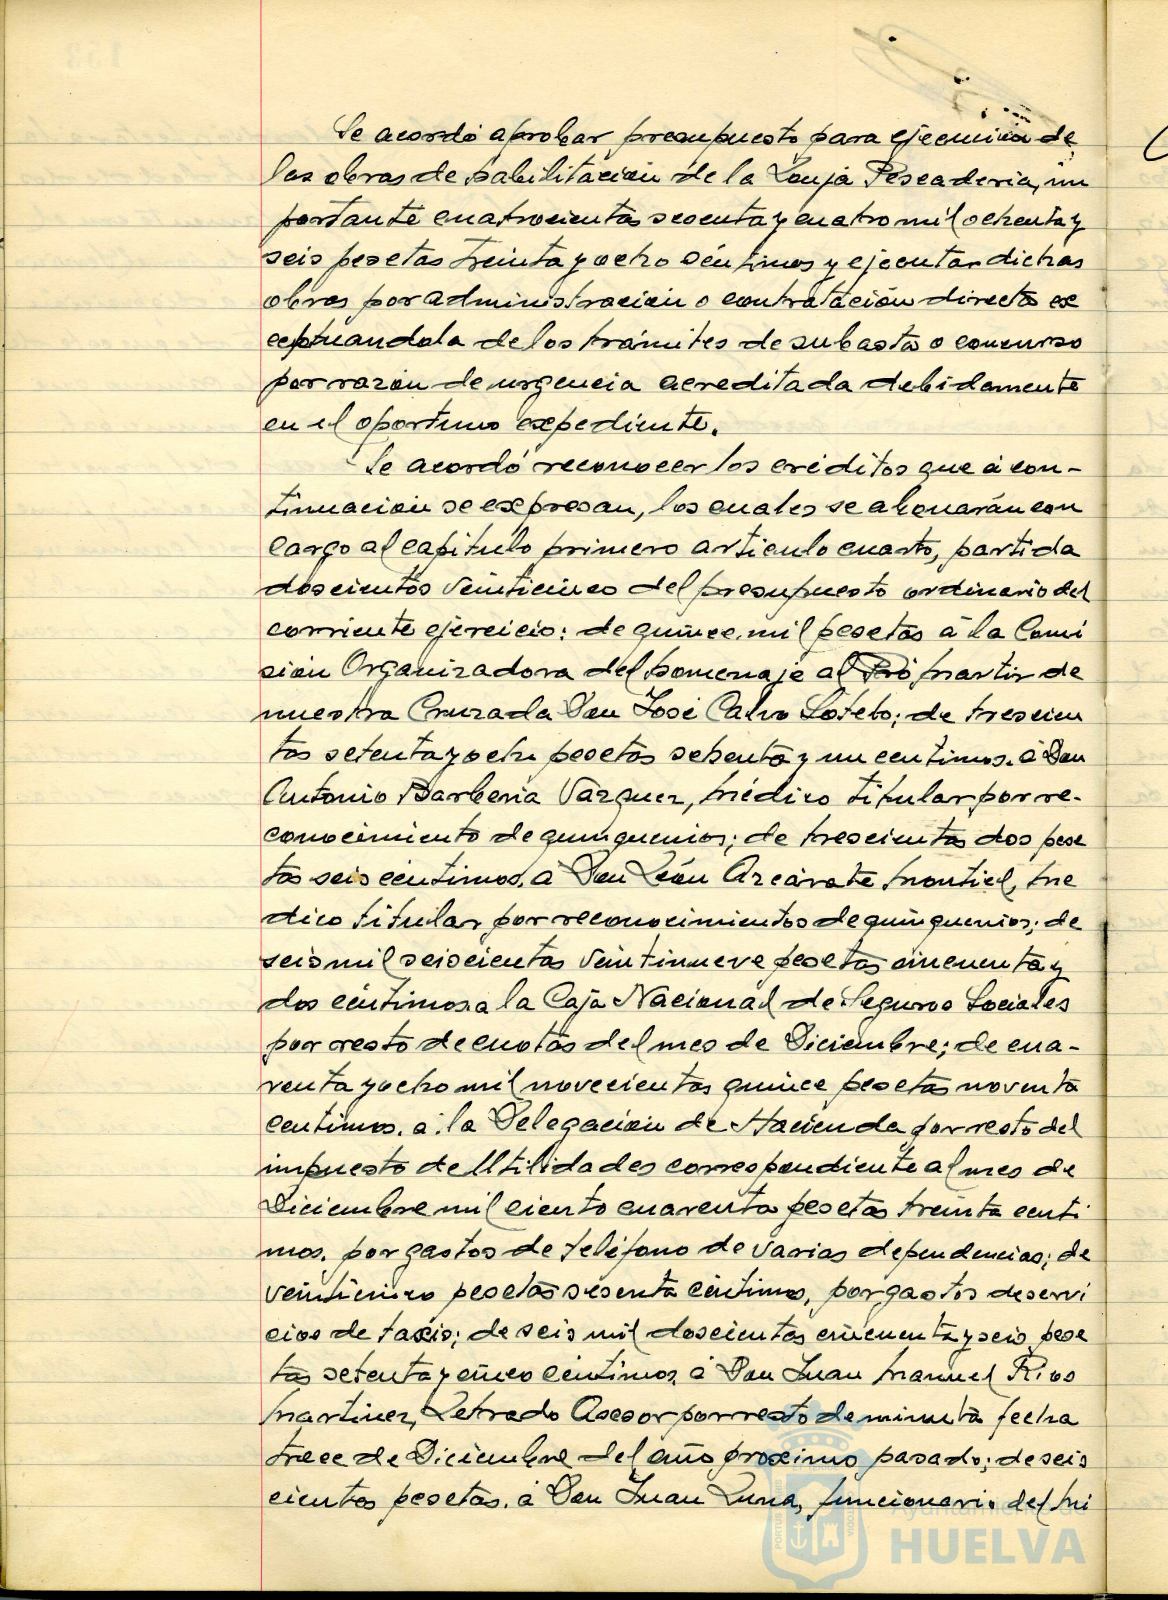 Se acordó aprobar presupuesto para ejecución de
las obras de habilitación de la Lonja Pescaderia, im
portante cuatrocientas sesenta y cuatro mil ochenta y
seis pesetas treinta y ocho céntimos y ejecutar dichas
obras por administración o contratación directa ex
ceptuandola de los trámites de subasta o concurso
por razón de urgencia acreditada debidamente
en el oportuno expediente.
Se acordó reconocer los créditos que á con-
tinuación se expresan, los cuales se abonarán con
cargo al capítulo primero artículo cuarto, partida
doscientos veinticinco del presupuesto ordinario del
corriente ejercicio: de quince mil pesetas á la Comi
sión Organizadora del homenaje al Pró Martir de
nuestra Cruzada Don José Calvo Sotelo; de trescien
tas setenta y ocho pesetas setenta y un centimos. á Don
Antonio Barberia Vázquez, Médico titular por re-
conocimiento de quinquenios; de trescientas dos pese
tas seis céntimos, á Don León Azcárate Montiel, Mé
dico titular por reconocimientos de quinquenios; de
seis mil seiscientas veintinueve pesetas cincuenta y
dos céntimos a la Caja Nacional de Seguros Sociales
por resto de cuotas del mes de Diciembre; de cua-
renta y ocho mil novecientas quince pesetas noventa
centimos. á la Delegación de Hacienda por resto del
impuesto de Utilidades correspondiente al mes de
Diciembre mil ciento cuarenta pesetas treinta centi
mos. por gastos de teléfono de varias dependencias; de
veinticinco pesetas sesenta céntimos, por gastos de servi
cios de taxis; de seis mil doscientas cincuenta y seis pese
tas setenta y cinco céntimos á Don Juan Manuel Rios
Martinez, Letrado Asesor por resto de minuta fecha
trece de Diciembre del año próximo pasado; de seis
cientos pesetas. á Don Juan Luna, funcionario del Mi
Ayuntamiento de
HUELVA